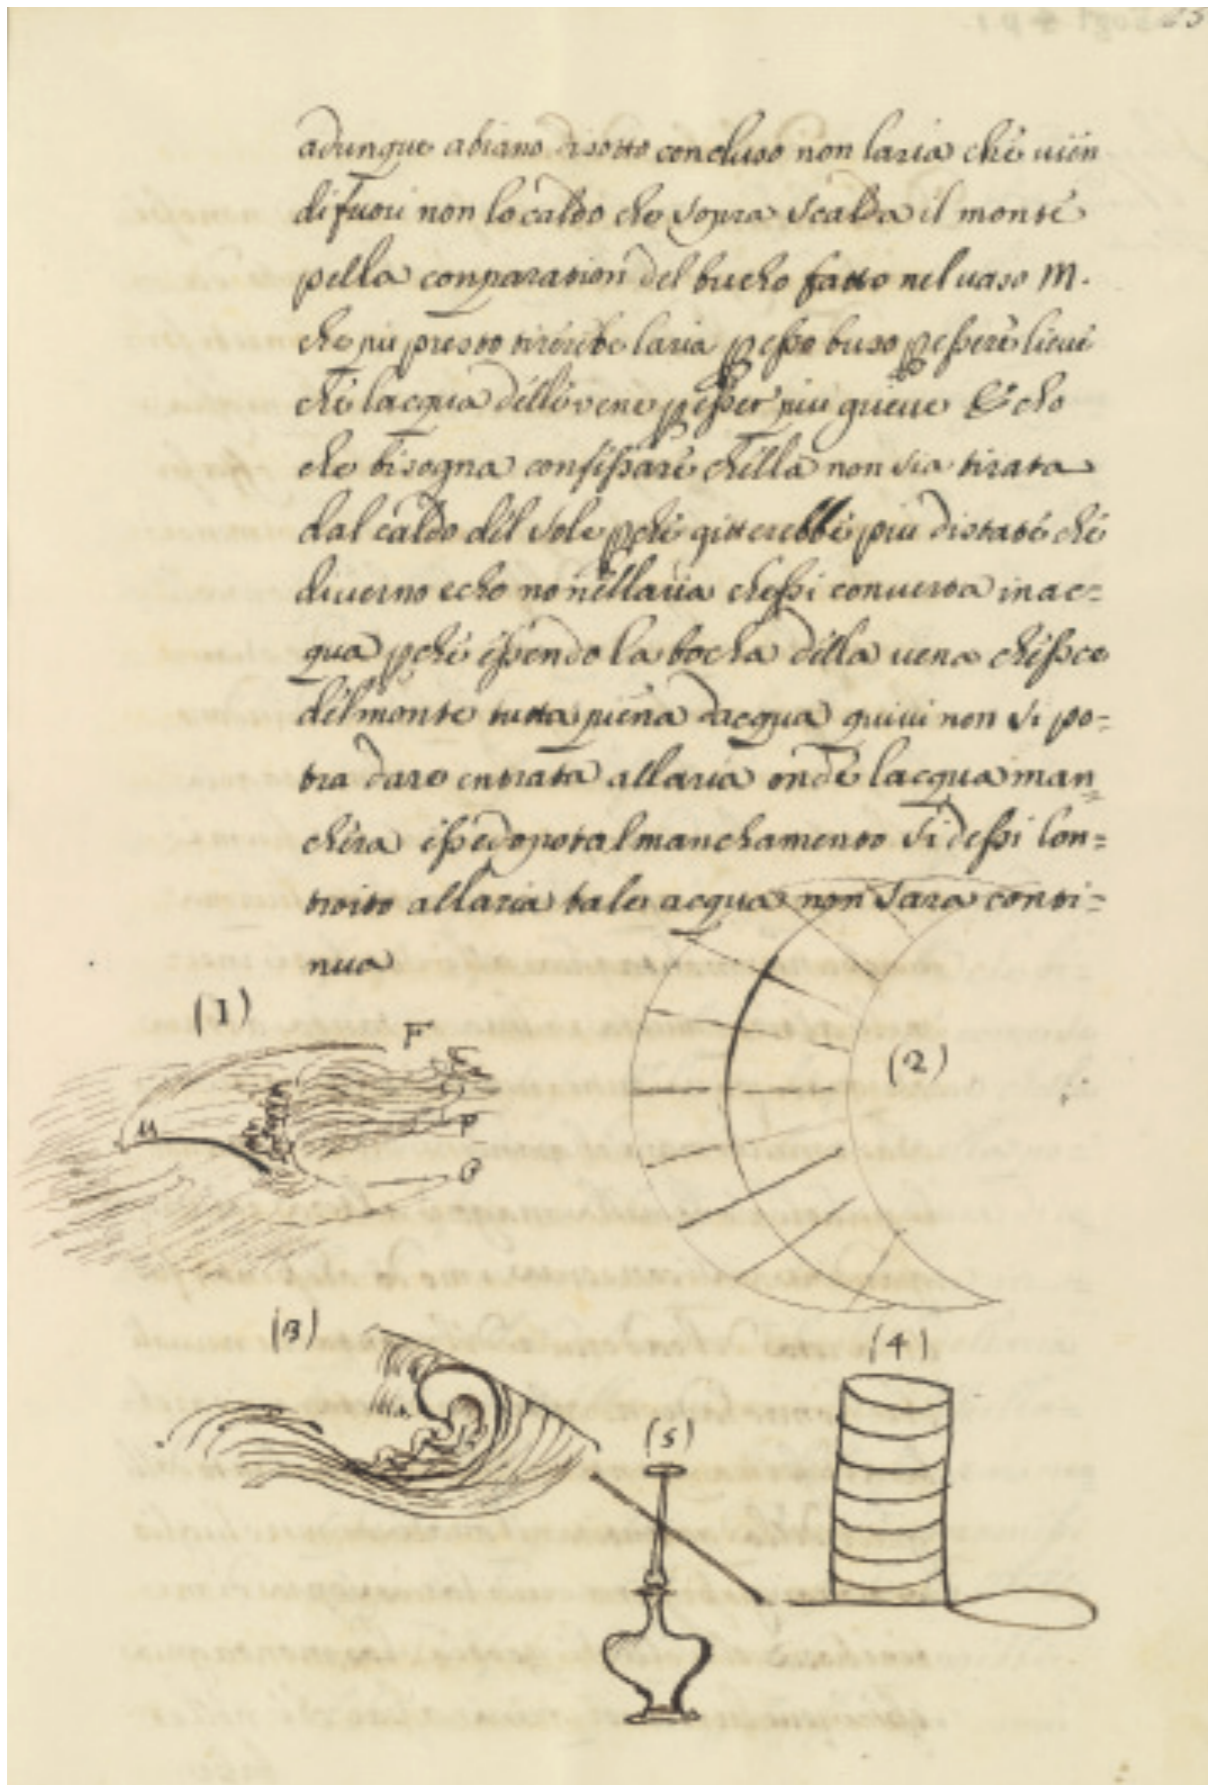 adunque abiano disotto concluso non laria che uien
di fuori non lo caldo che sopra scalda il monte
pella conparation del bucho fatto nel uaso M.
che piu presto tirerebe laria p esso buso p essere lieue
che lacqua delle vene p esser piu grieue Echo
che bisogna confessare chella non sia tirata
dal caldo del sole p che gitterebbe piu distate che
diuerno echo no nellaria chessi conuerta in ac=
qua p che essendo la bocha della uena chesce
del monte tutta piena dacqua quiui non si po=
tra dare entrata allaria onde lacqua man=
chera e ssedopo tal manchamento si dessi lon=
troito allaria tale acqua non sara conti=
nua
(1)
F
M
P
(2)
(3)
(4)
(5)